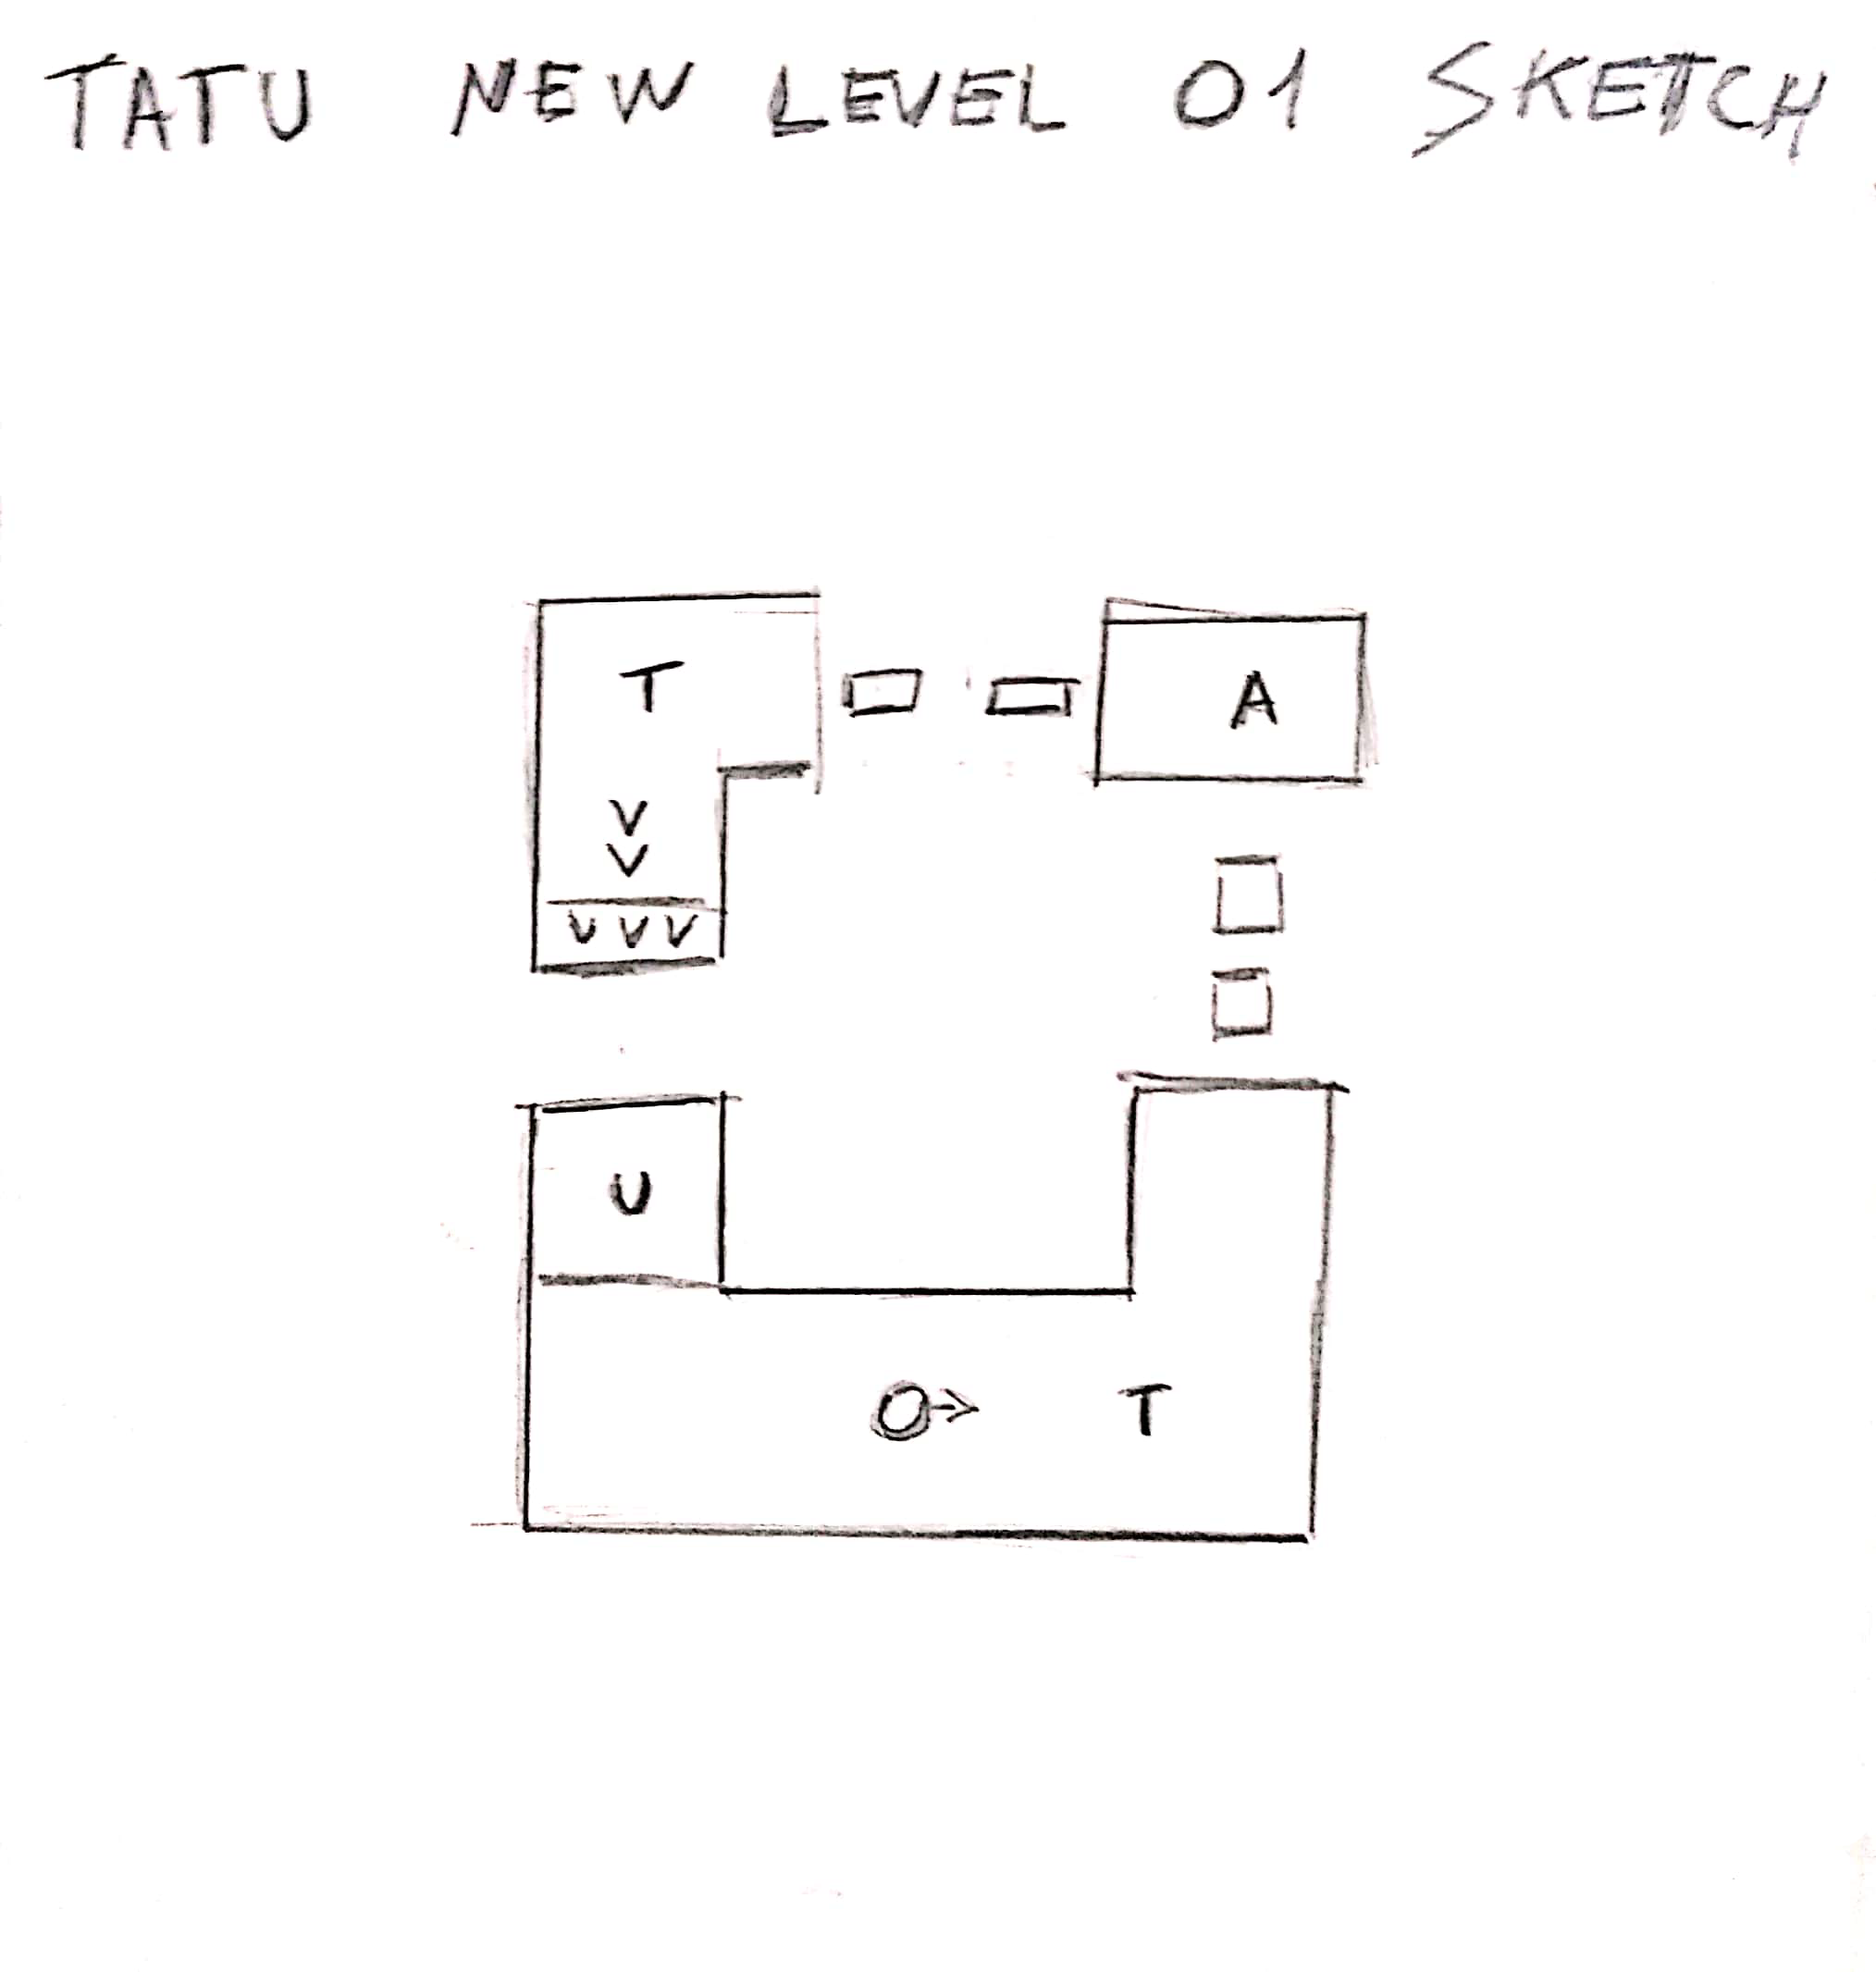 TATU NEW LEVEL 01 SKETCH
T
A
V
V
V V V
U
O→ T